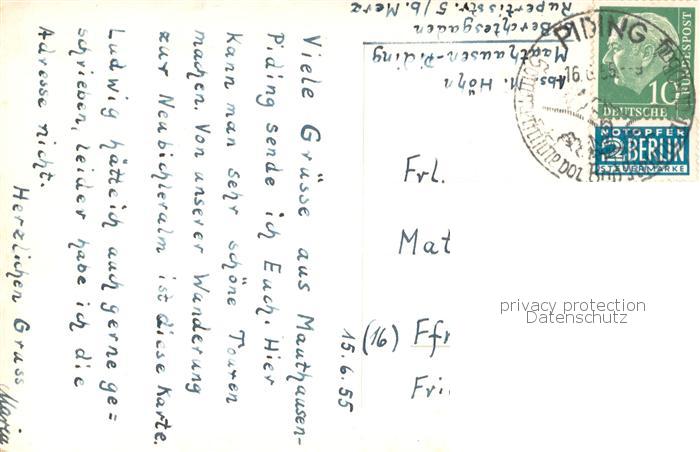 Viele Grüsse aus Mauthausen-
Piding sende ich Euch. Hier
kann man sehr schöne Touren
machen. Von unserer Wanderung
zur Neubichleralm ist diese Karte.
Ludwig hätte ich auch gerne ge=
schrieben, leider habe ich die
Adresse nicht.
Herzlichen Gruss
Maria
15.6.55
Abs. M. Höhn
Mauthausen-Piding
Berchtesgaden
Rupertisstr. 5 / b. Merz
PIDING
16.6.55
10
DEUTSCHE
BUNDESPOST
NOTOPFER
2 BERLIN
STEUERMARKE
Frl.
Mat
(16) Ffr
Frie
privacy protection
Datenschutz